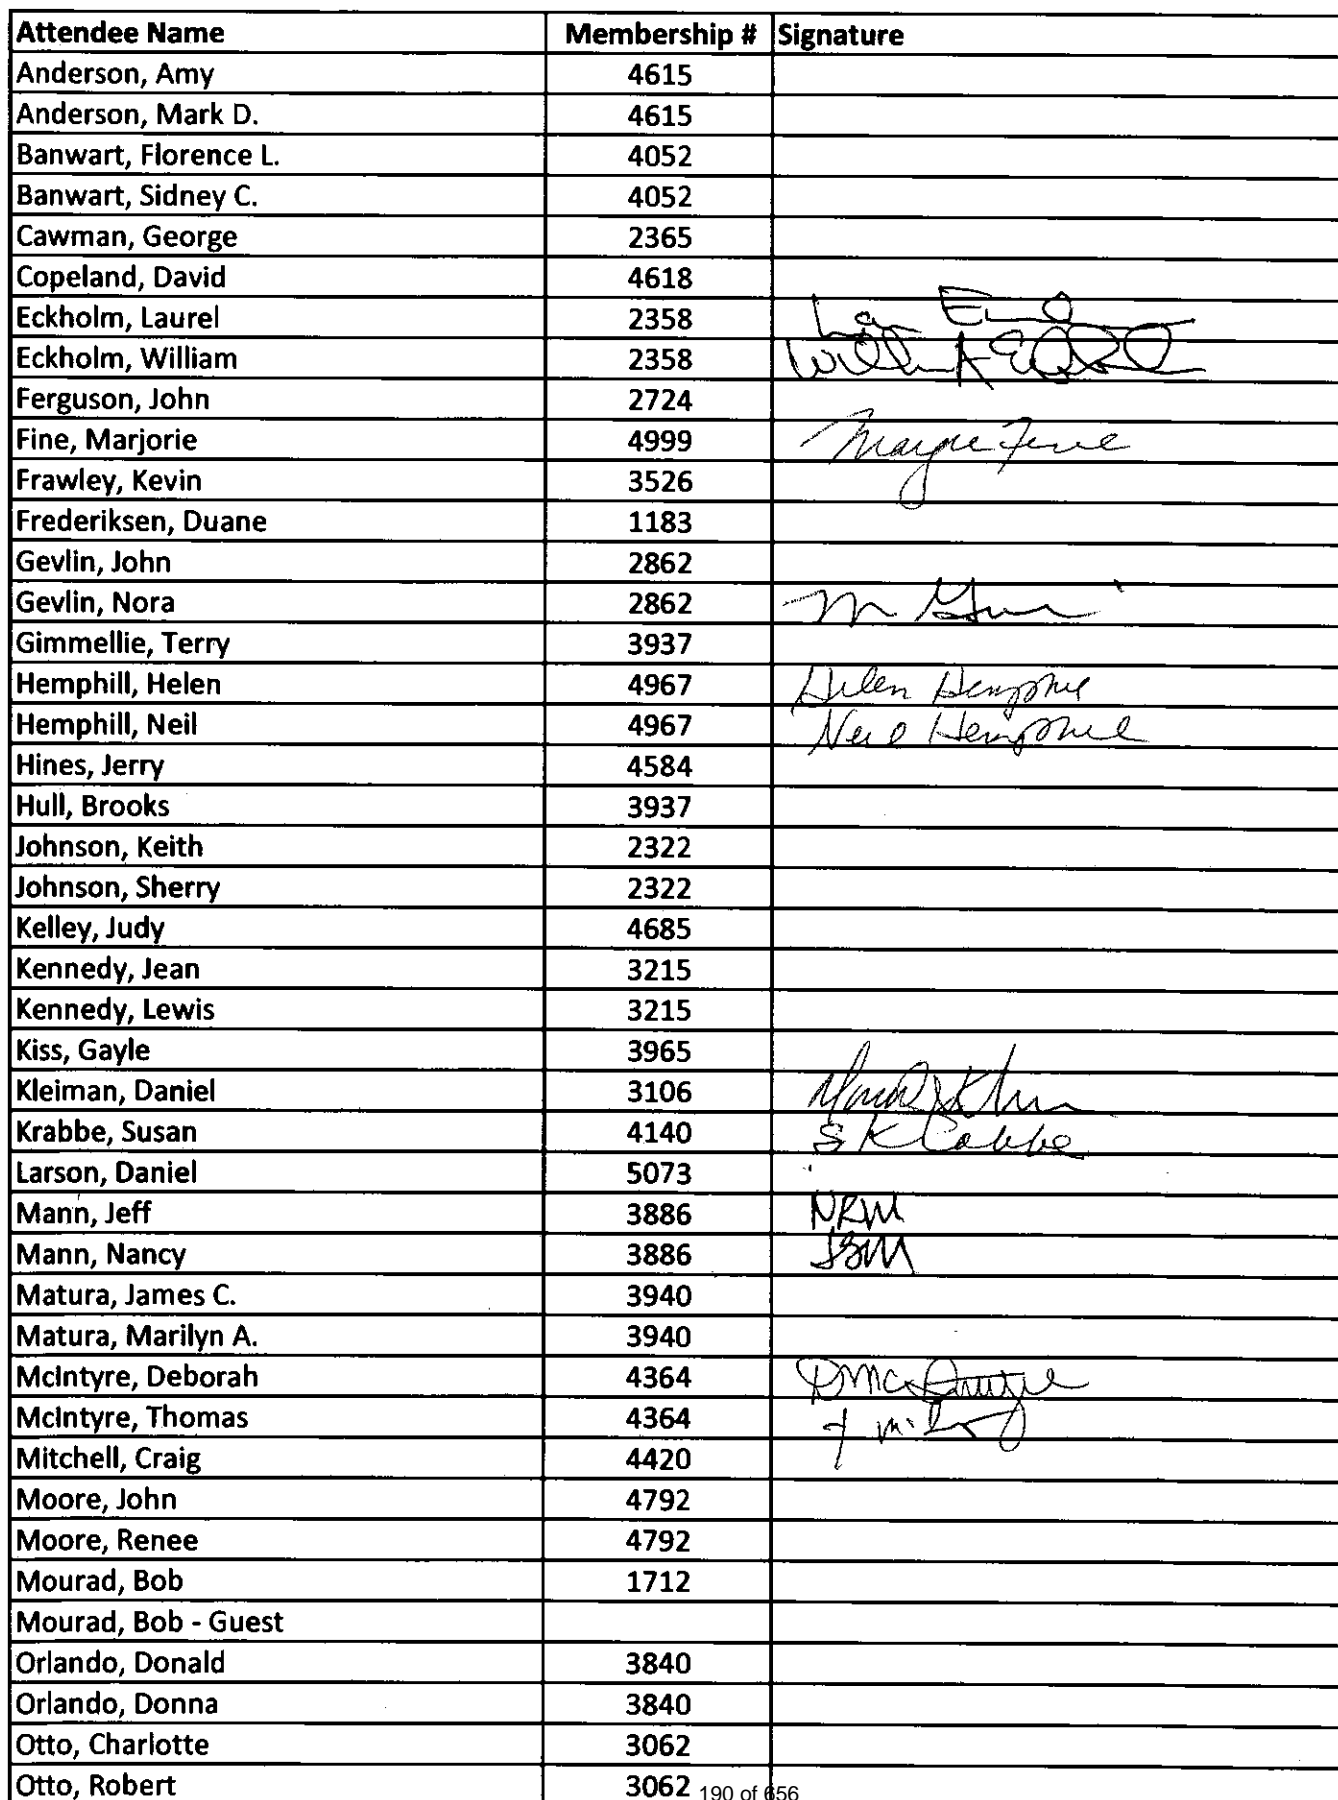 Attendee Name Membership # Signature
Anderson, Amy 4615
Anderson, Mark D. 4615
Banwart, Florence L. 4052
Banwart, Sidney C. 4052
Cawman, George 2365
Copeland, David 4618
Eckholm, Laurel 2358
Eckholm, William 2358
Ferguson, John 2724
Fine, Marjorie 4999
Frawley, Kevin 3526
Frederiksen, Duane 1183
Gevlin, John 2862
Gevlin, Nora 2862
Gimmellie, Terry 3937
Hemphill, Helen 4967 Helen Hemphill
Hemphill, Neil 4967 Neil Hemphill
Hines, Jerry 4584
Hull, Brooks 3937
Johnson, Keith 2322
Johnson, Sherry 2322
Kelley, Judy 4685
Kennedy, Jean 3215
Kennedy, Lewis 3215
Kiss, Gayle 3965
Kleiman, Daniel 3106
Krabbe, Susan 4140
Larson, Daniel 5073
Mann, Jeff 3886 NRM
Mann, Nancy 3886 JBM
Matura, James C. 3940
Matura, Marilyn A. 3940
McIntyre, Deborah 4364 DMcIntyre
McIntyre, Thomas 4364
Mitchell, Craig 4420
Moore, John 4792
Moore, Renee 4792
Mourad, Bob 1712
Mourad, Bob - Guest
Orlando, Donald 3840
Orlando, Donna 3840
Otto, Charlotte 3062
Otto, Robert 3062
190 of 656